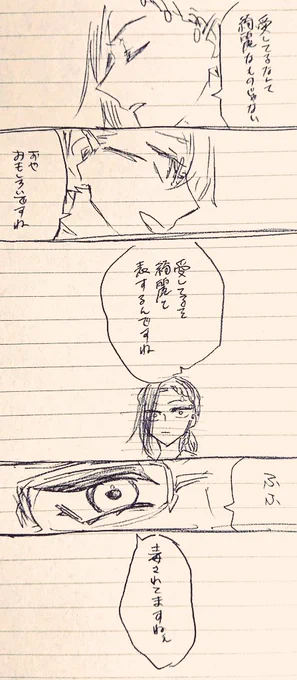 愛してるなんて
綺麗なものじゃない
おや
おもしろいですね
愛してるを
綺麗と
表するんですね
ふふ
毒されてますねぇ